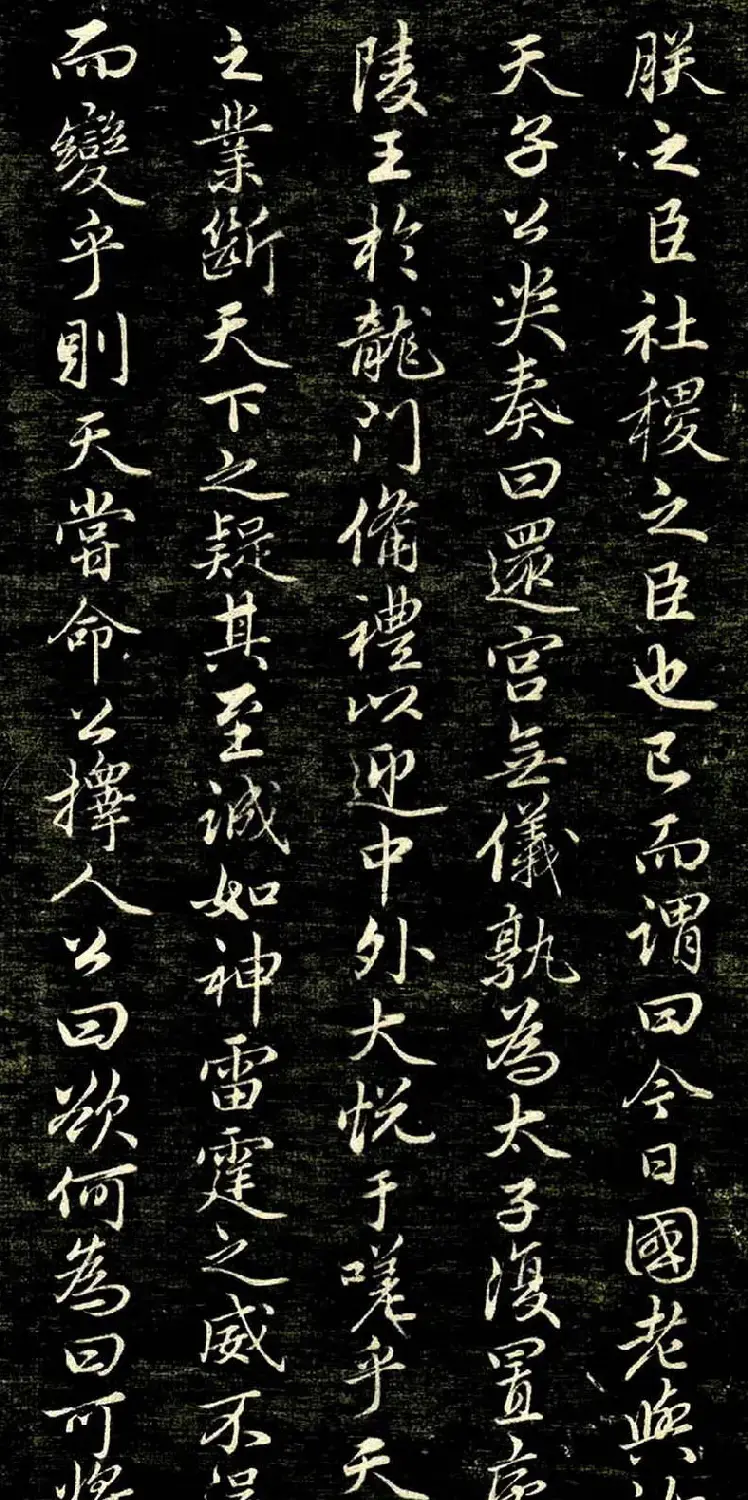 朕之臣社稷之臣也已而謂曰今日國老與
天子公哭奏曰還宮無儀孰為太子復置
陵王於龍門備禮以迎中外大悅于嗟乎天
之業斷天下之疑其至誠如神雷霆之威不
而變乎則天嘗命公擇人公曰欲何為曰可將